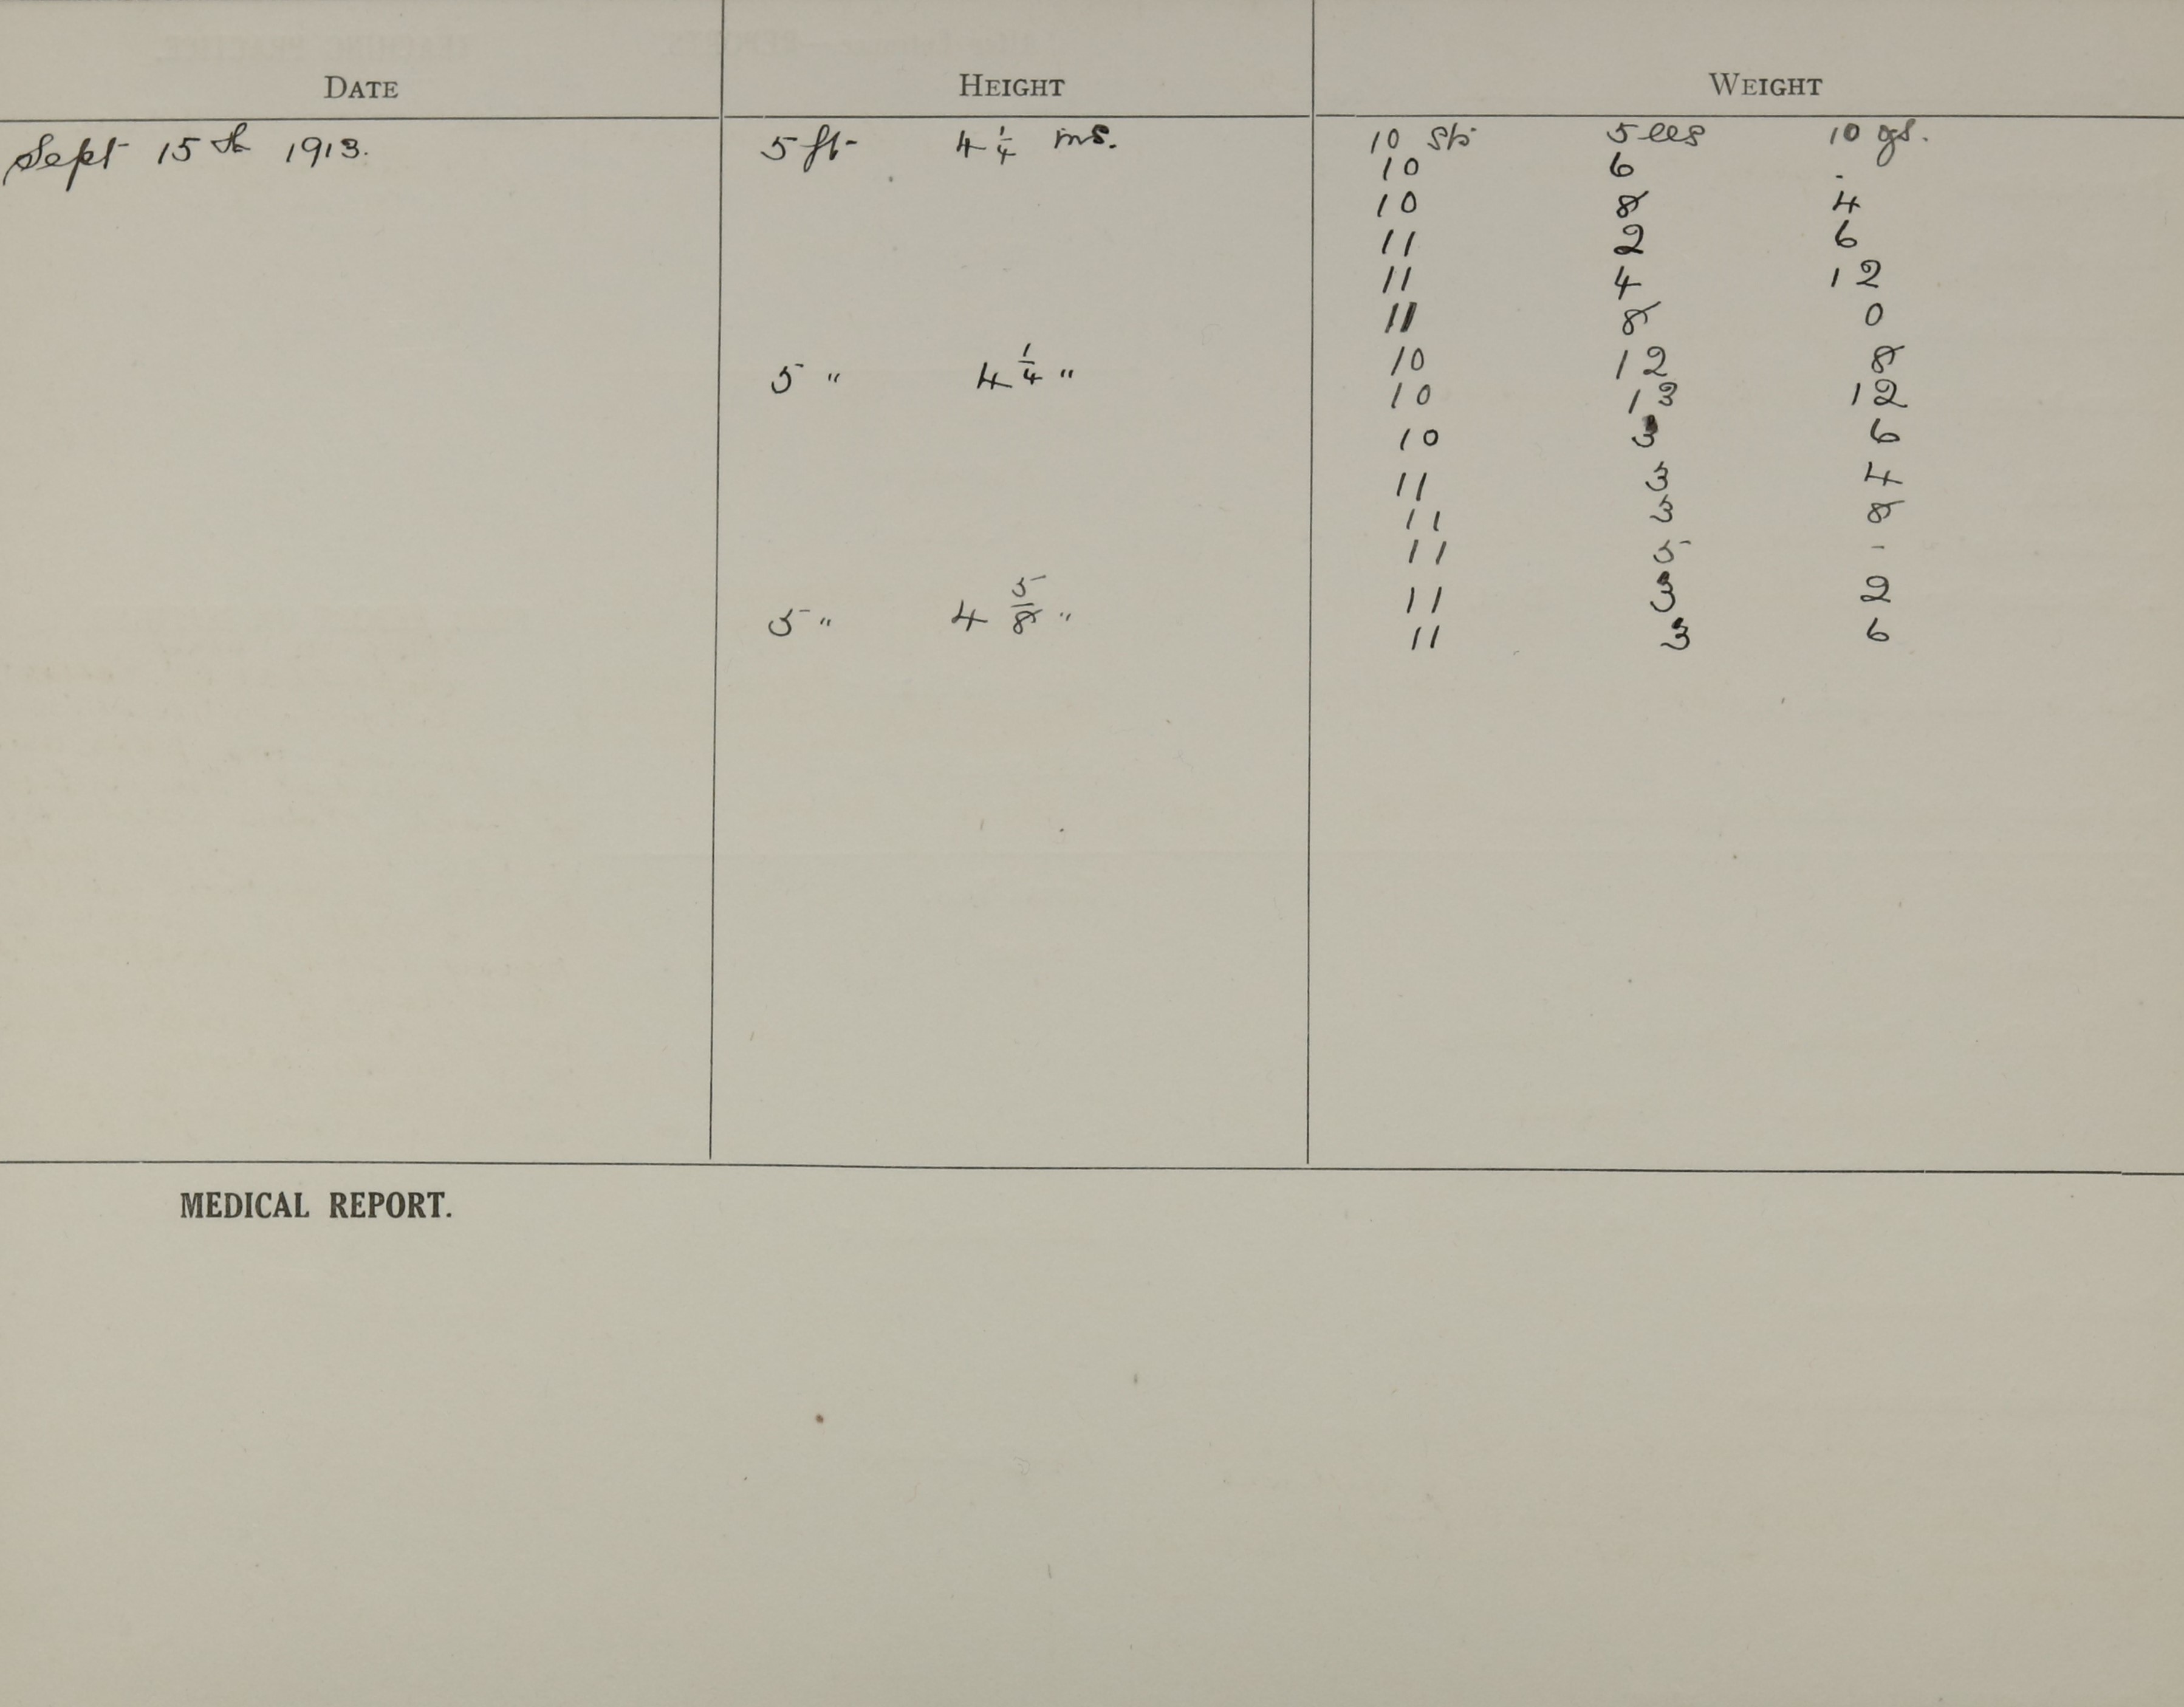 DATE HEIGHT WEIGHT
Sept 15th 1913. 5 ft 4 1/4 ins. 10 sts 5 lbs 10 ozs.
10 6 -
10 8 4
11 2 6
11 4 12
11 8 0
5 " 4 1/4 " 10 12 8
10 13 12
10 3 6
11 3 4
11 3 8
11 5 -
5 " 4 5/8 " 11 3 2
11 3 6
MEDICAL REPORT.